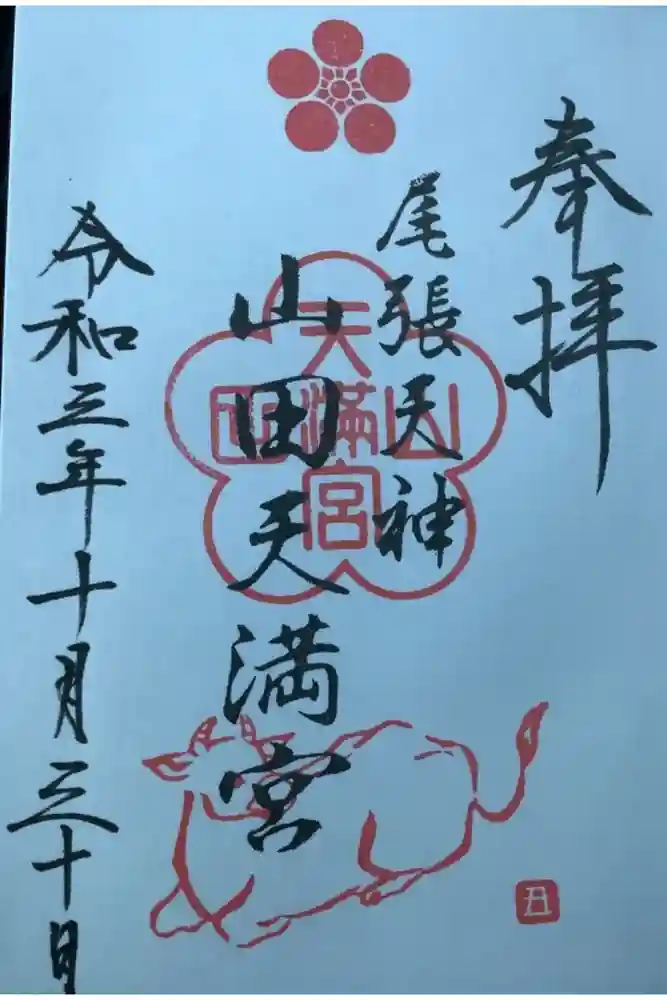 奉拝
尾張天神
山田天満宮
令和三年十月三十日
山田
天満宮
丑